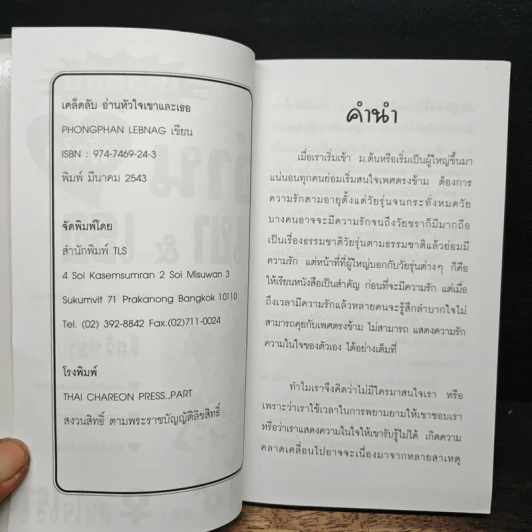 เคล็ดลับ อ่านหัวใจเขาและเธอ
PHONGPHAN LEBNAG เขียน
ISBN : 974-7469-24-3
พิมพ์ มีนาคม 2543
จัดพิมพ์โดย
สำนักพิมพ์ TLS
4 Soi Kasemsumran 2 Soi Misuwan 3
Sukumvit 71 Prakanong Bangkok 10110
Tel. (02) 392-8842 Fax.(02)711-0024
โรงพิมพ์
THAI CHAREON PRESS.,PART
สงวนสิทธิ์ ตามพระราชบัญญัติลิขสิทธิ์
คำนำ
เมื่อเราเริ่มเข้า ม.ต้นหรือเริ่มเป็นผู้ใหญ่ขึ้นมา
แน่นอนทุกคนย่อมเริ่มสนใจเพศตรงข้าม ต้องการ
ความรักตามอายุตั้งแต่วัยรุ่นจนกระทั่งหมดวัย
บางคนอาจจะมีความรักจนถึงวัยชราก็มีมากถือ
เป็นเรื่องธรรมชาติวัยรุ่นตามธรรมชาติแล้วย่อมมี
ความรัก แต่หน้าที่ที่ผู้ใหญ่บอกกับวัยรุ่นต่างๆ ก็คือ
ให้เรียนหนังสือเป็นสำคัญ ก่อนที่จะมีความรัก แต่เมื่อ
ถึงเวลามีความรักแล้วหลายคนจะรู้สึกลำบากใจไม่
สามารถคุยกับเพศตรงข้าม ไม่สามารถ แสดงความรัก
ความในใจของตัวเอง ได้อย่างเต็มที่
ทำไมเราจึงคิดว่าไม่มีใครมาสนใจเรา หรือ
เพราะว่าเราใช้เวลาในการพยามยามให้เขาชอบเรา
หรือว่าเราแสดงความในใจให้เขารับรู้ไม่ได้ เกิดความ
คลาดเคลื่อนไปอาจจะเนื่องมาจากหลายสาเหตุ